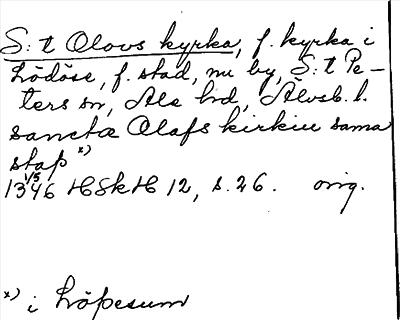 S:t Olovs kyrka, f. kyrka i
Lödöse, f. stad, nu by, S:t Pe-
ters sn, Ale hd, Älvsb. l.
sancta Olafs kirkiu sama
staþ x)
1346 1/5 HSkH 12, s. 26. orig.
x) i Löþesum